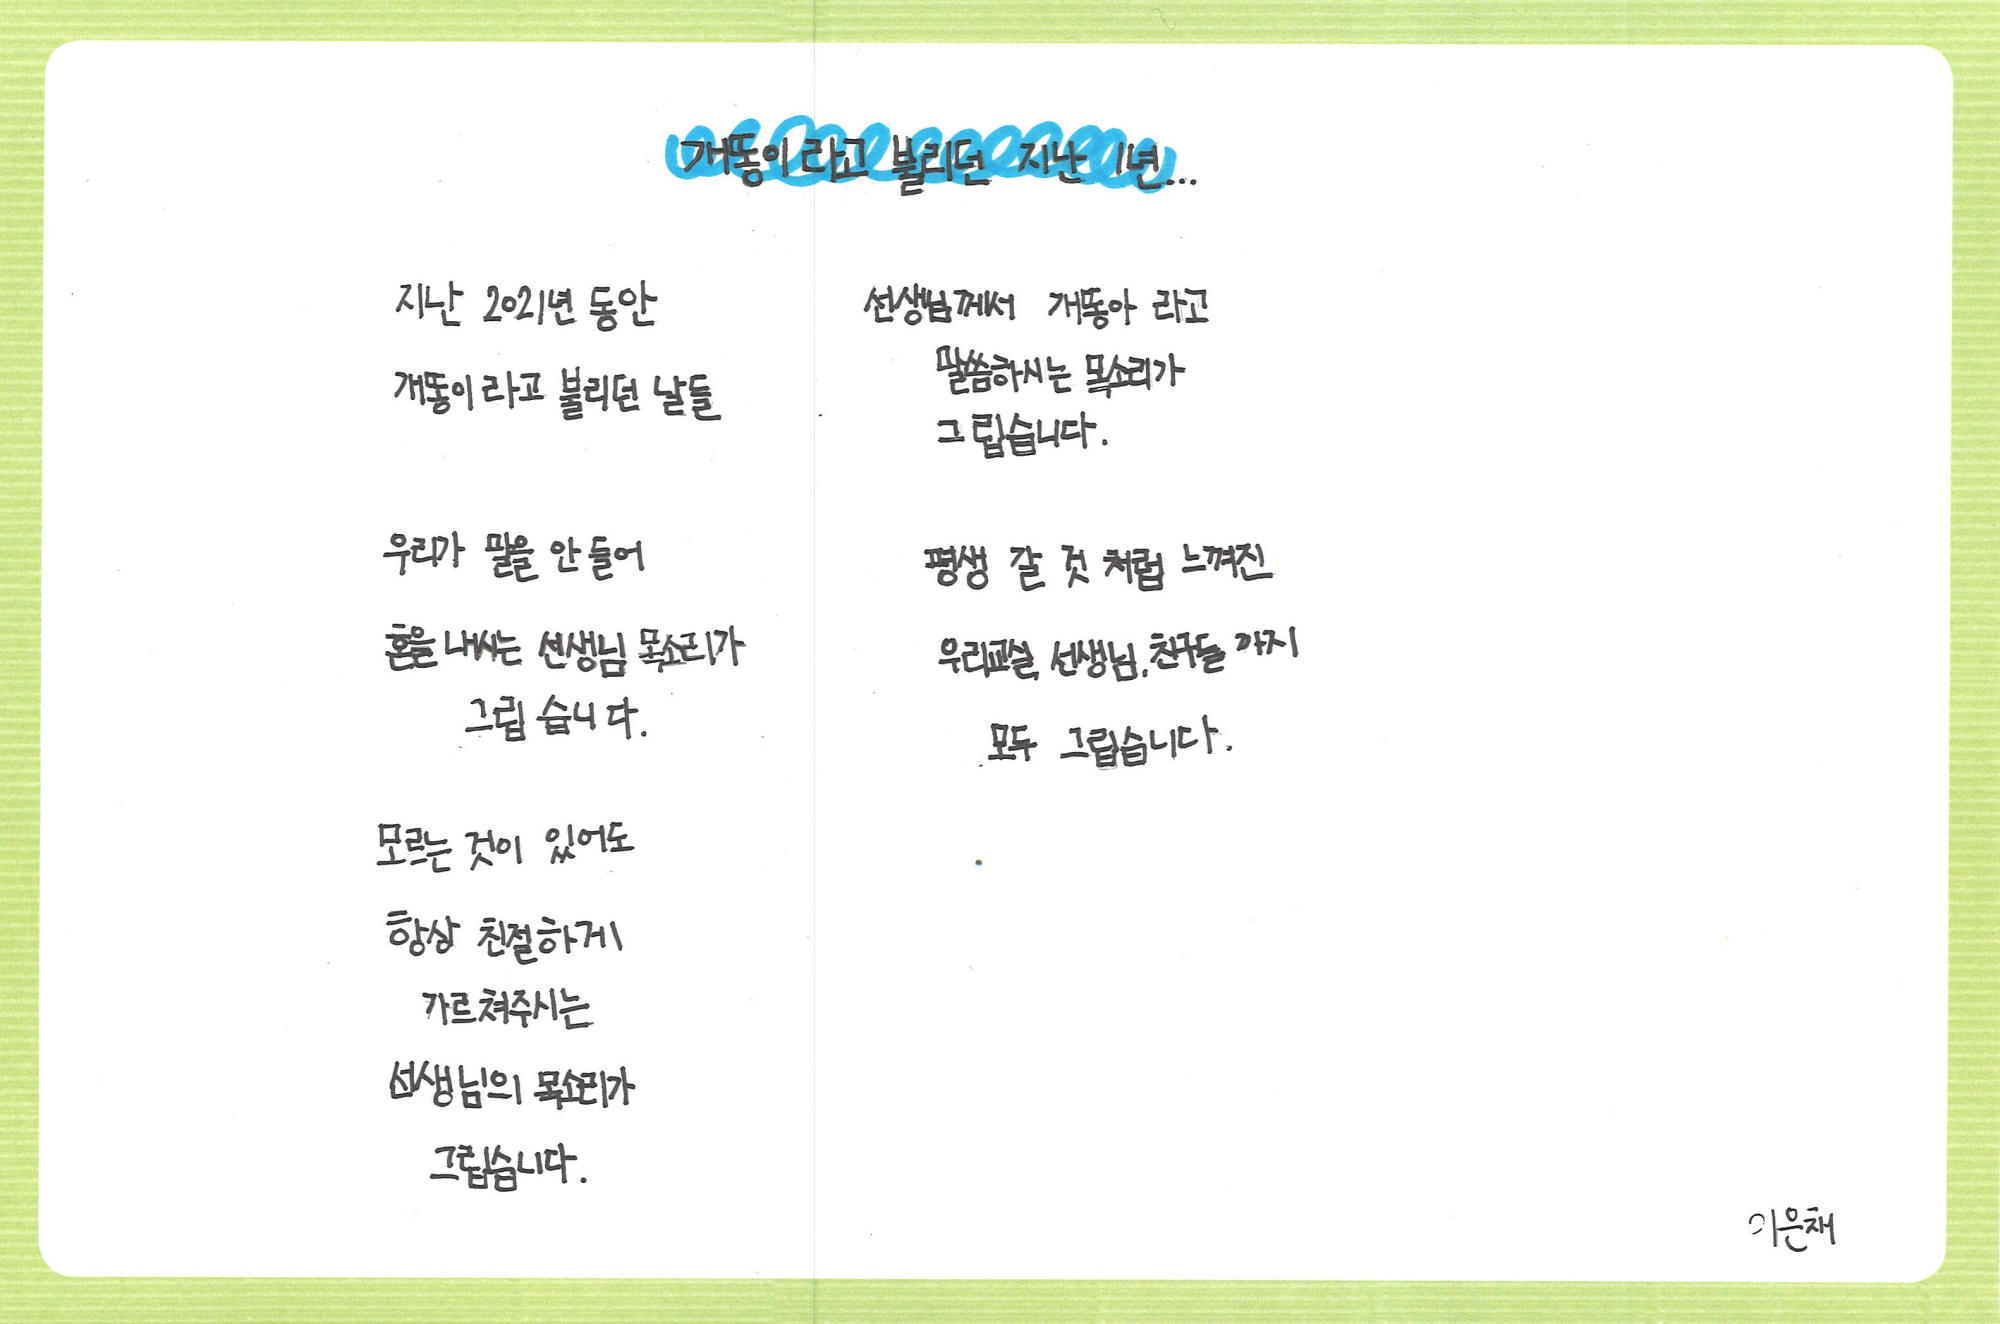 개똥이라고 불리던 지난 1년...
지난 2021년 동안
개똥이라고 불리던 날들
우리가 말을 안 들어
혼을 내시는 선생님 목소리가
그립습니다.
모르는 것이 있어도
항상 친절하게
가르쳐주시는
선생님의 목소리가
그립습니다.
선생님께서 개똥아 라고
말씀하시는 목소리가
그립습니다.
평생 갈 것 처럼 느껴진
우리교실, 선생님, 친구들 까지
모두 그립습니다.
이은채